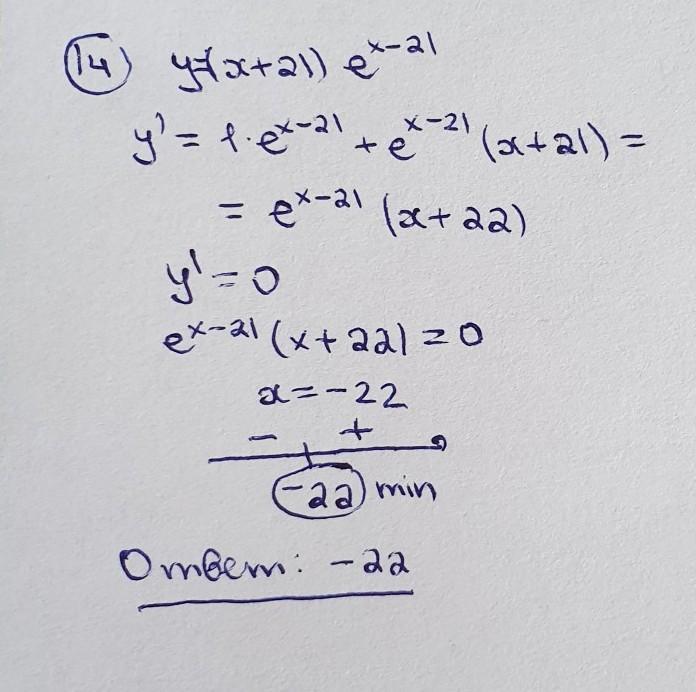 14 y=(x+21) e^x-21
y' = 1·e^x-21 + e^x-21 (x+21) =
= e^x-21 (x+22)
y' = 0
e^x-21 (x+22) = 0
x = -22
- +
-22 min
Ответ: -22